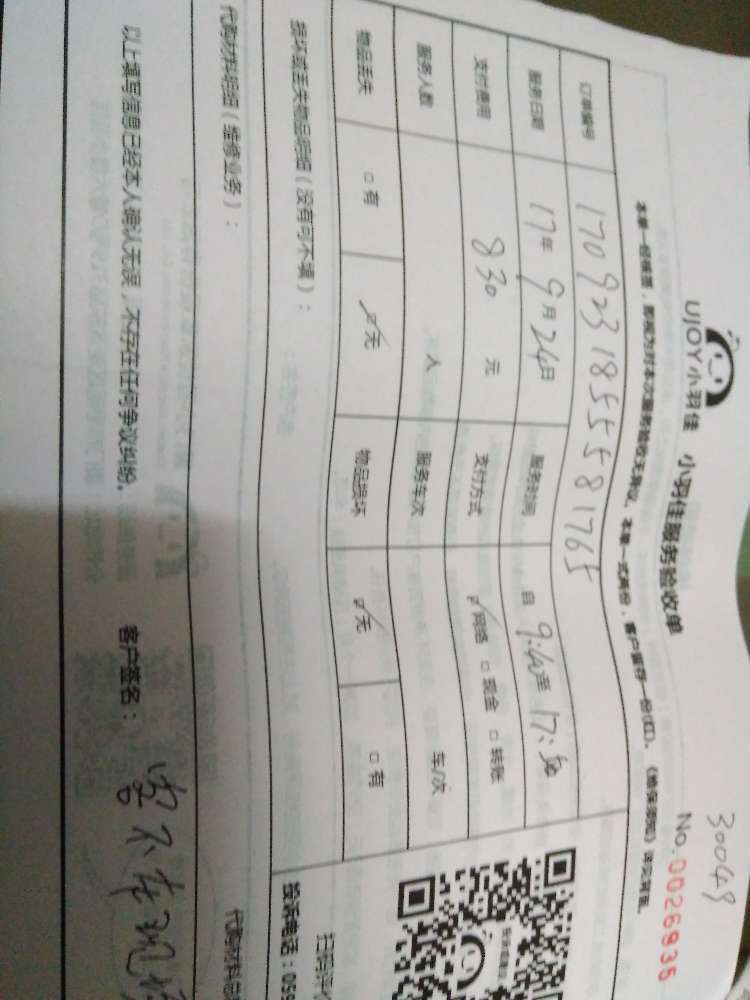 30049
UJOY小羽佳 小羽佳服务验收单
No.0026935
本单一经核签,即视为对本次服务验收无异议。本单一式两份,客户留存一份(红)。
订单编号 17092318555581765
服务日期 17年9月24日 服务时间 自 至 17:
支付费用 830 元 支付方式 网络 □现金 □转账
服务人数 人 服务车次 车/次
物品丢失 □有 无 物品损坏 无 □有
损坏或丢失物品明细(没有可不填):
代购材料明细(维修业务):
扫码评
投诉电话:059
以上填写信息已经本人确认无误,不存在任何争议纠纷。 客户签名: 客不在现场